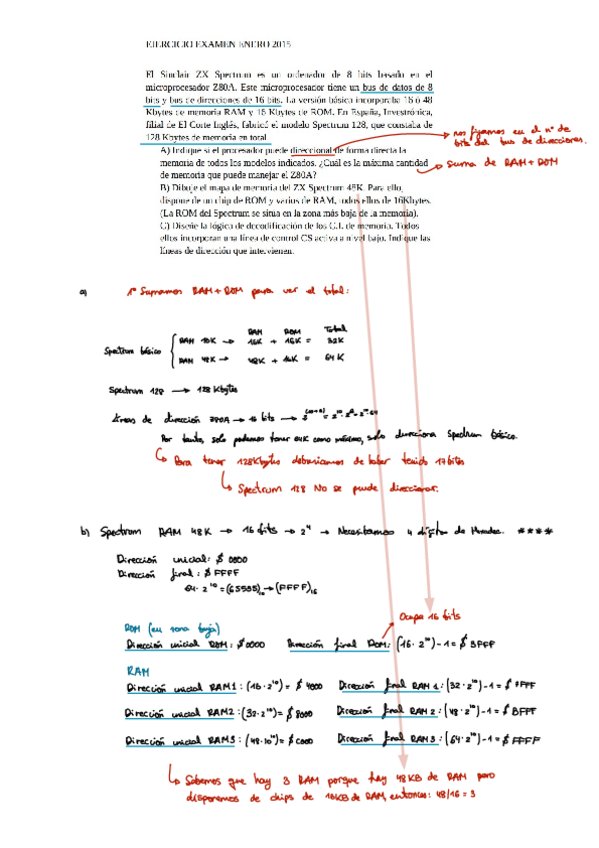 EJERCICIO EXAMEN ENERO 2015
El Sinclair ZX Spectrum es un ordenador de 8 bits basado en el
microprocesador Z80A. Este microprocesador tiene un bus de datos de 8
bits y bus de direcciones de 16 bits. La versión básica incorporaba 16 ó 48
Kbytes de memoria RAM y 16 Kbytes de ROM. En España, Investrónica,
filial de El Corte Inglés, fabricó el modelo Spectrum 128, que constaba de
128 Kbytes de memoria en total
A) Indique si el procesador puede direccional de forma directa la
memoria de todos los modelos indicados. ¿Cuál es la máxima cantidad
de memoria que puede manejar el Z80A?
B) Dibuje el mapa de memoria del ZX Spectrum 48K. Para ello,
dispone de un chip de ROM y varios de RAM, todos ellos de 16Kbytes.
(La ROM del Spectrum se situa en la zona más baja de la memoria).
C) Diseñe la lógica de decodificación de los C.I. de memoria. Todos
ellos incorporan una línea de control CS activa a nivel bajo. Indique las
líneas de dirección que intervienen.
nos fijamos en el nº de
bits del bus de direcciones.
Suma de RAM + ROM
a) 1º Sumamos RAM + ROM para ver el total:
RAM ROM Total
Spectrum básico
RAM 16K → 16K + 16K = 32K
RAM 48K → 48K + 16K = 64K
Spectrum 128 → 128 Kbytes
líneas de dirección Z80A → 16 bits →
Por tanto, solo podemos tener 64K como máximo, solo direcciona Spectrum básico.
Para tener 128Kbytes deberíamos de haber tenido 17 bits
Spectrum 128 No se puede direccionar.
b) Spectrum RAM 48K → 16 bits → 2⁴ → Necesitamos 4 dígitos de Hexadec. ****
Dirección inicial: $ 0000
Dirección final: $ FFFF
64·2¹⁰ = (65535)₁₀ → (FFFF)₁₆
Ocupa 16 bits
ROM (en zona baja)
Dirección inicial ROM: $0000 Dirección final ROM: (16·2¹⁰)-1 = $ 3FFF
RAM
Dirección inicial RAM1: (16·2¹⁰) = $ 4000 Dirección final RAM 1: (32·2¹⁰)-1 = $ 7FFF
Dirección inicial RAM2: (32·2¹⁰) = $ 8000 Dirección final RAM 2: (48·2¹⁰)-1 = $ BFFF
Dirección inicial RAM3: (48·10¹⁰) = $ C000 Dirección final RAM3: (64·2¹⁰)-1 = $ FFFF
Sabemos que hay 3 RAM porque hay 48KB de RAM pero
disponemos de chips de 16KB de RAM, entonces: 48/16 = 3